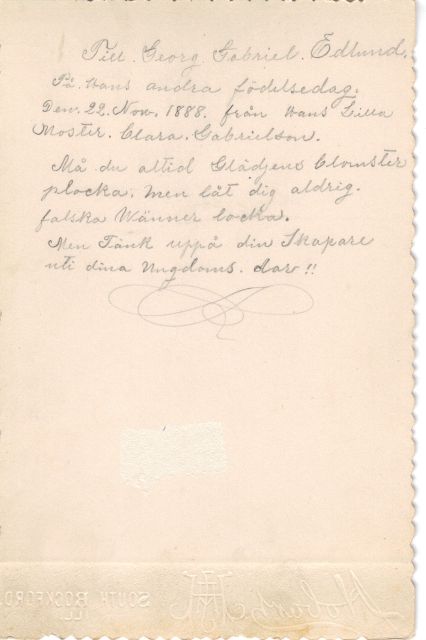 Till. Georg. Gabriel. Edlund.
På. Hans andra födelsedag.
Den. 22. Nov. 1888. från Hans Lilla
Moster. Clara. Gabrielson.
Må du altid Glädjens Blomster
plocka. men låt dig aldrig.
falska Wänner locka.
Men Tänk uppå din Skapare
uti dina Ungdoms. dar !!
SOUTH ROCKFORD
ILL